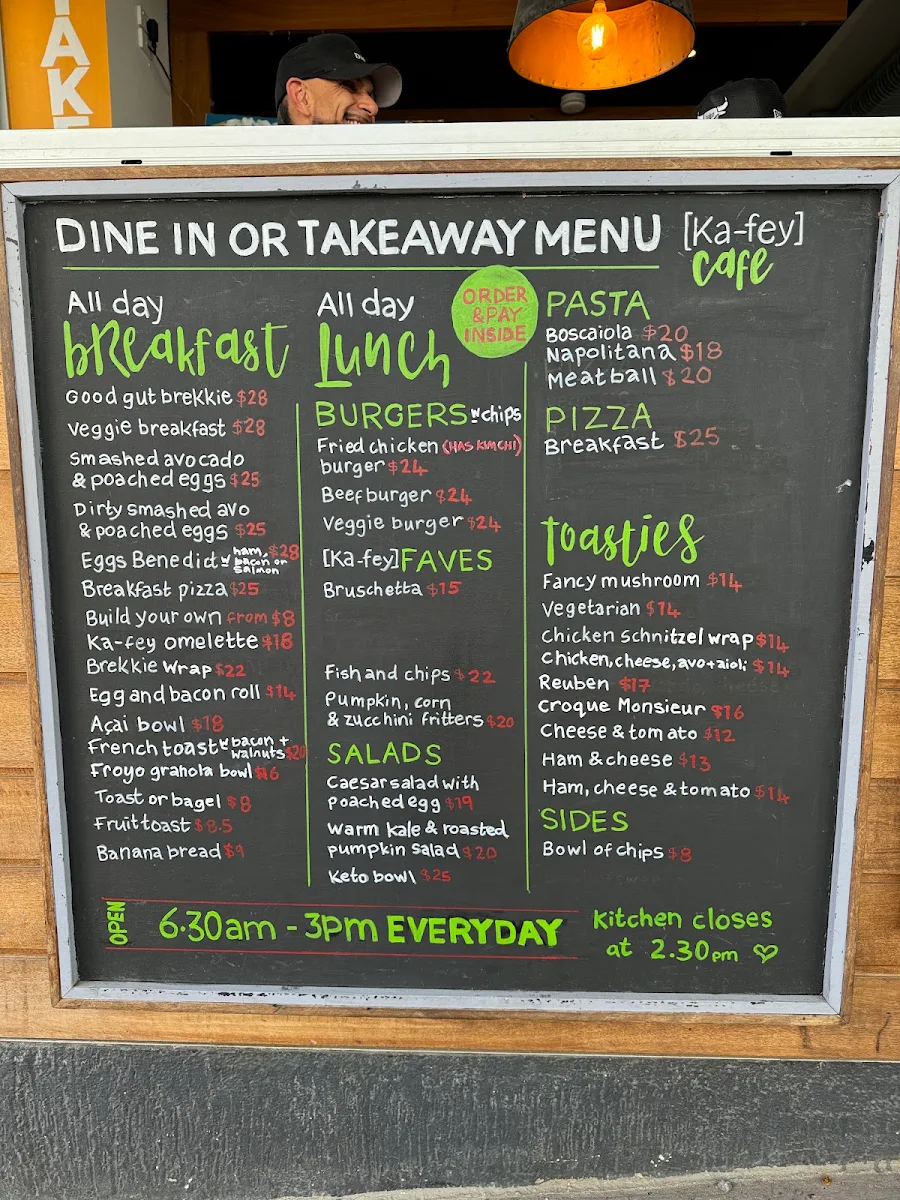 TAKE
DINE IN OR TAKEAWAY MENU [Ka-fey]
cafe
All day
breakfast
Good gut brekkie $28
Veggie breakfast $28
Smashed avocado
& poached eggs $25
Dirty smashed avo
& poached eggs $25
Eggs Benedict w ham, $28
bacon or
salmon
Breakfast pizza $25
Build your own from $8
Ka-fey omelette $18
Brekkie wrap $22
Egg and bacon roll $14
Açai bowl $18
French toast w bacon +
walnuts $20
Froyo granola bowl $16
Toast or bagel $8
Fruit toast $8.5
Banana bread $9
All day
Lunch
ORDER
& PAY
INSIDE
BURGERS w chips
Fried chicken (HAS KIMCHI)
burger $24
Beef burger $24
Veggie burger $24
[Ka-fey] FAVES
Bruschetta $15
Fish and chips $22
Pumpkin, corn
& zucchini fritters $20
SALADS
Caesar salad with
poached egg $19
Warm kale & roasted
pumpkin salad $20
Keto bowl $25
PASTA
Boscaiola $20
Napolitana $18
Meatball $20
PIZZA
Breakfast $25
Toasties
Fancy mushroom $14
Vegetarian $14
Chicken schnitzel wrap $14
Chicken, cheese, avo + aioli $14
Reuben $17
Croque Monsieur $16
Cheese & tomato $12
Ham & cheese $13
Ham, cheese & tomato $14
SIDES
Bowl of chips $8
OPEN 6.30am - 3pm EVERYDAY
Kitchen closes
at 2.30pm